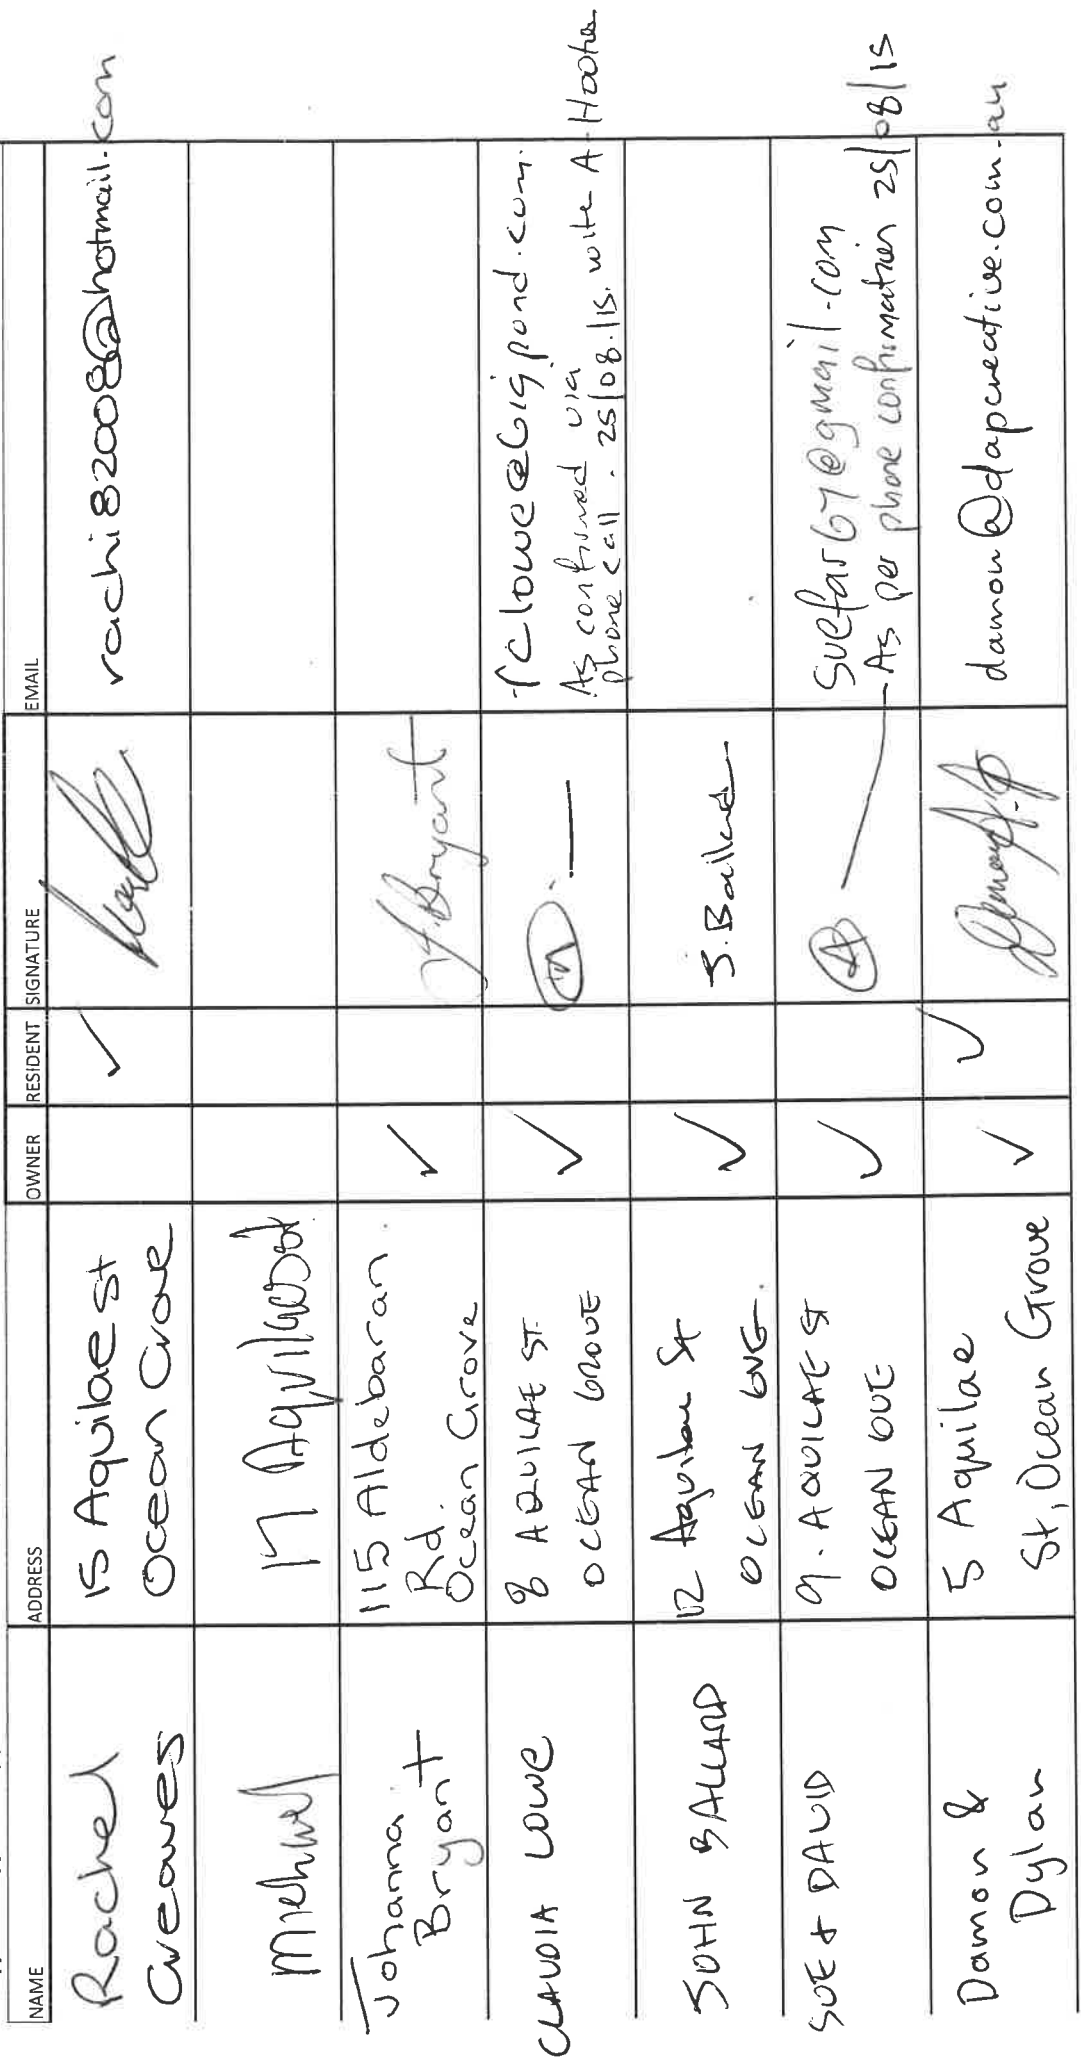 NAME ADDRESS OWNER RESIDENT SIGNATURE EMAIL
Rachel
Greaves
15 Aquilae st
Ocean Grove
✓
rachi82008@hotmail.com
Michael
17 Aquilae st
Johanna
Bryant
115 Aldebaran
Rd.
Ocean Grove
✓
J. Bryant
CLAUDIA LOWE
8 AQUILAE ST.
OCEAN GROVE
✓
TClowe@bigpond.com.
As confirmed via
phone call. 25/08/15. with A Hooker
JOHN BALLARD
12 Aquilae St
OCEAN GVE.
✓
J. Ballard
SUE & DAVID
9. AQUILAE ST
OCEAN GVE
✓
A
suefar67@gmail.com
As per phone confirmation 25/08/15
Damon &
Dylan
5 Aquilae
St, Ocean Grove
✓ ✓
damon@dapcreative.com.au